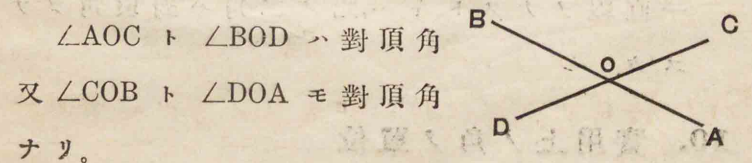 ∠AOC ト ∠BOD ハ 對頂角
又 ∠COB ト ∠DOA モ 對頂角
ナリ。
B
C
O
D
A